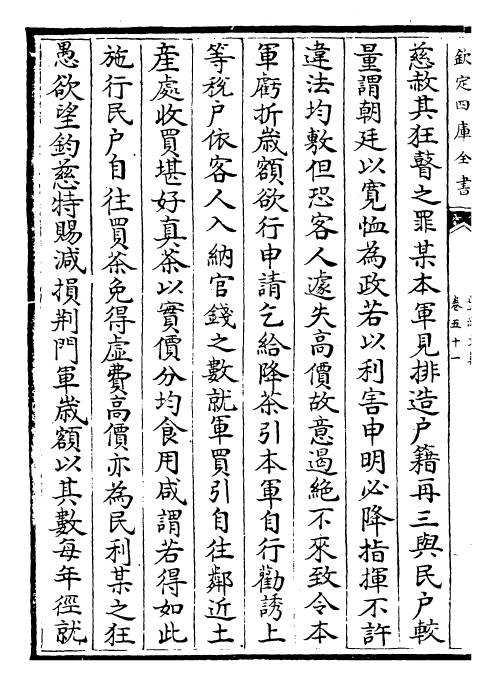 欽定四庫全書
卷五十一
慈赦其狂瞽之罪某本軍見排造户籍再三與民户較
量謂朝廷以寛恤為政若以利害申明必降指揮不許
違法均敷但恐客人遽失高價故意遏絶不來致令本
軍虧折歳額欲行申請乞給降茶引本軍自行勸誘上
等稅户依客人入納官錢之數就軍買引自往鄰近土
産處收買堪好真茶以實價分均食用咸謂若得如此
施行民户自往買茶免得虛費高價亦為民利某之狂
愚欲望鈞慈特賜減損荆門軍歳額以其數每年徑就